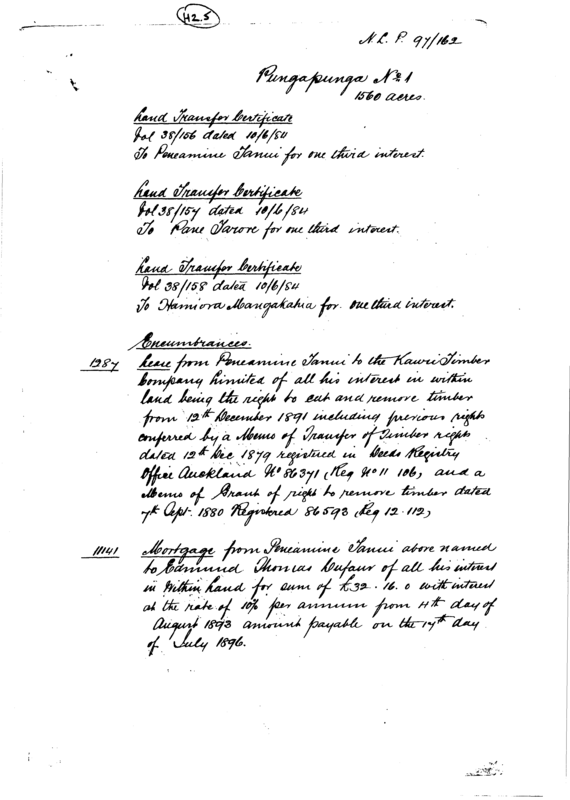 H2.5
N.L.P. 97/162
Pungapunga No 1
1560 acres.
Land Transfer Certificate
Vol 38/156 dated 10/6/84
To Peneamine Tanui for one third interest.
Land Transfer Certificate
Vol 38/157 dated 10/6/84
To Pane Tarore for one third interest.
Land Transfer Certificate
Vol 38/158 dated 10/6/84
To Hamiora Mangakahia for one third interest.
Encumbrances.
1287 Lease from Peneamine Tanui to the Kauri Timber
Company Limited of all his interest in within
land being the right to cut and remove timber
from 12th December 1891 including previous rights
conferred by a Memo of Transfer of Timber rights
dated 12th Dec 1879 registered in Deeds Registry
Office Auckland No 86371 (Reg No 11 106) and a
Memo of Grant of right to remove timber dated
7th Sept. 1880 Registered 86593 (Reg 12.112)
11141 Mortgage from Peneamine Tanui above named
to Edmund Thomas Dufaur of all his interest
in Within Land for sum of £32.16.0 with interest
at the rate of 10% per annum from 4th day of
August 1893 amount payable on the 17th day
of July 1896.